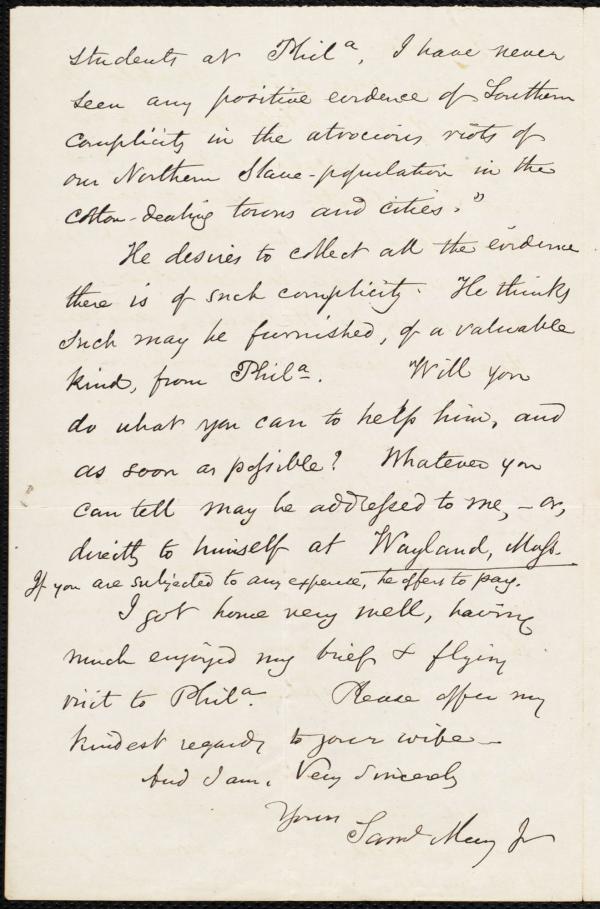 students at Phila, I have never
seen any positive evidence of Southern
complicity in the atrocious riots of
our Northern Slave-population in the
cotton-dealing towns and cities."
He desires to collect all the evidence
there is of such complicity. He thinks
such may be furnished, of a valuable
kind, from Phila. Will you
do what you can to help him, and
as soon as possible? Whatever you
can tell may be addressed to me, - or,
directly to himself at Wayland, Mass.
If you are subjected to any expense, he offers to pay.
I got home very well, having
much enjoyed my brief & flying
visit to Phila. Please offer my
kindest regards to your wife -
And I am, Very Sincerely
Yours
Saml May Jr